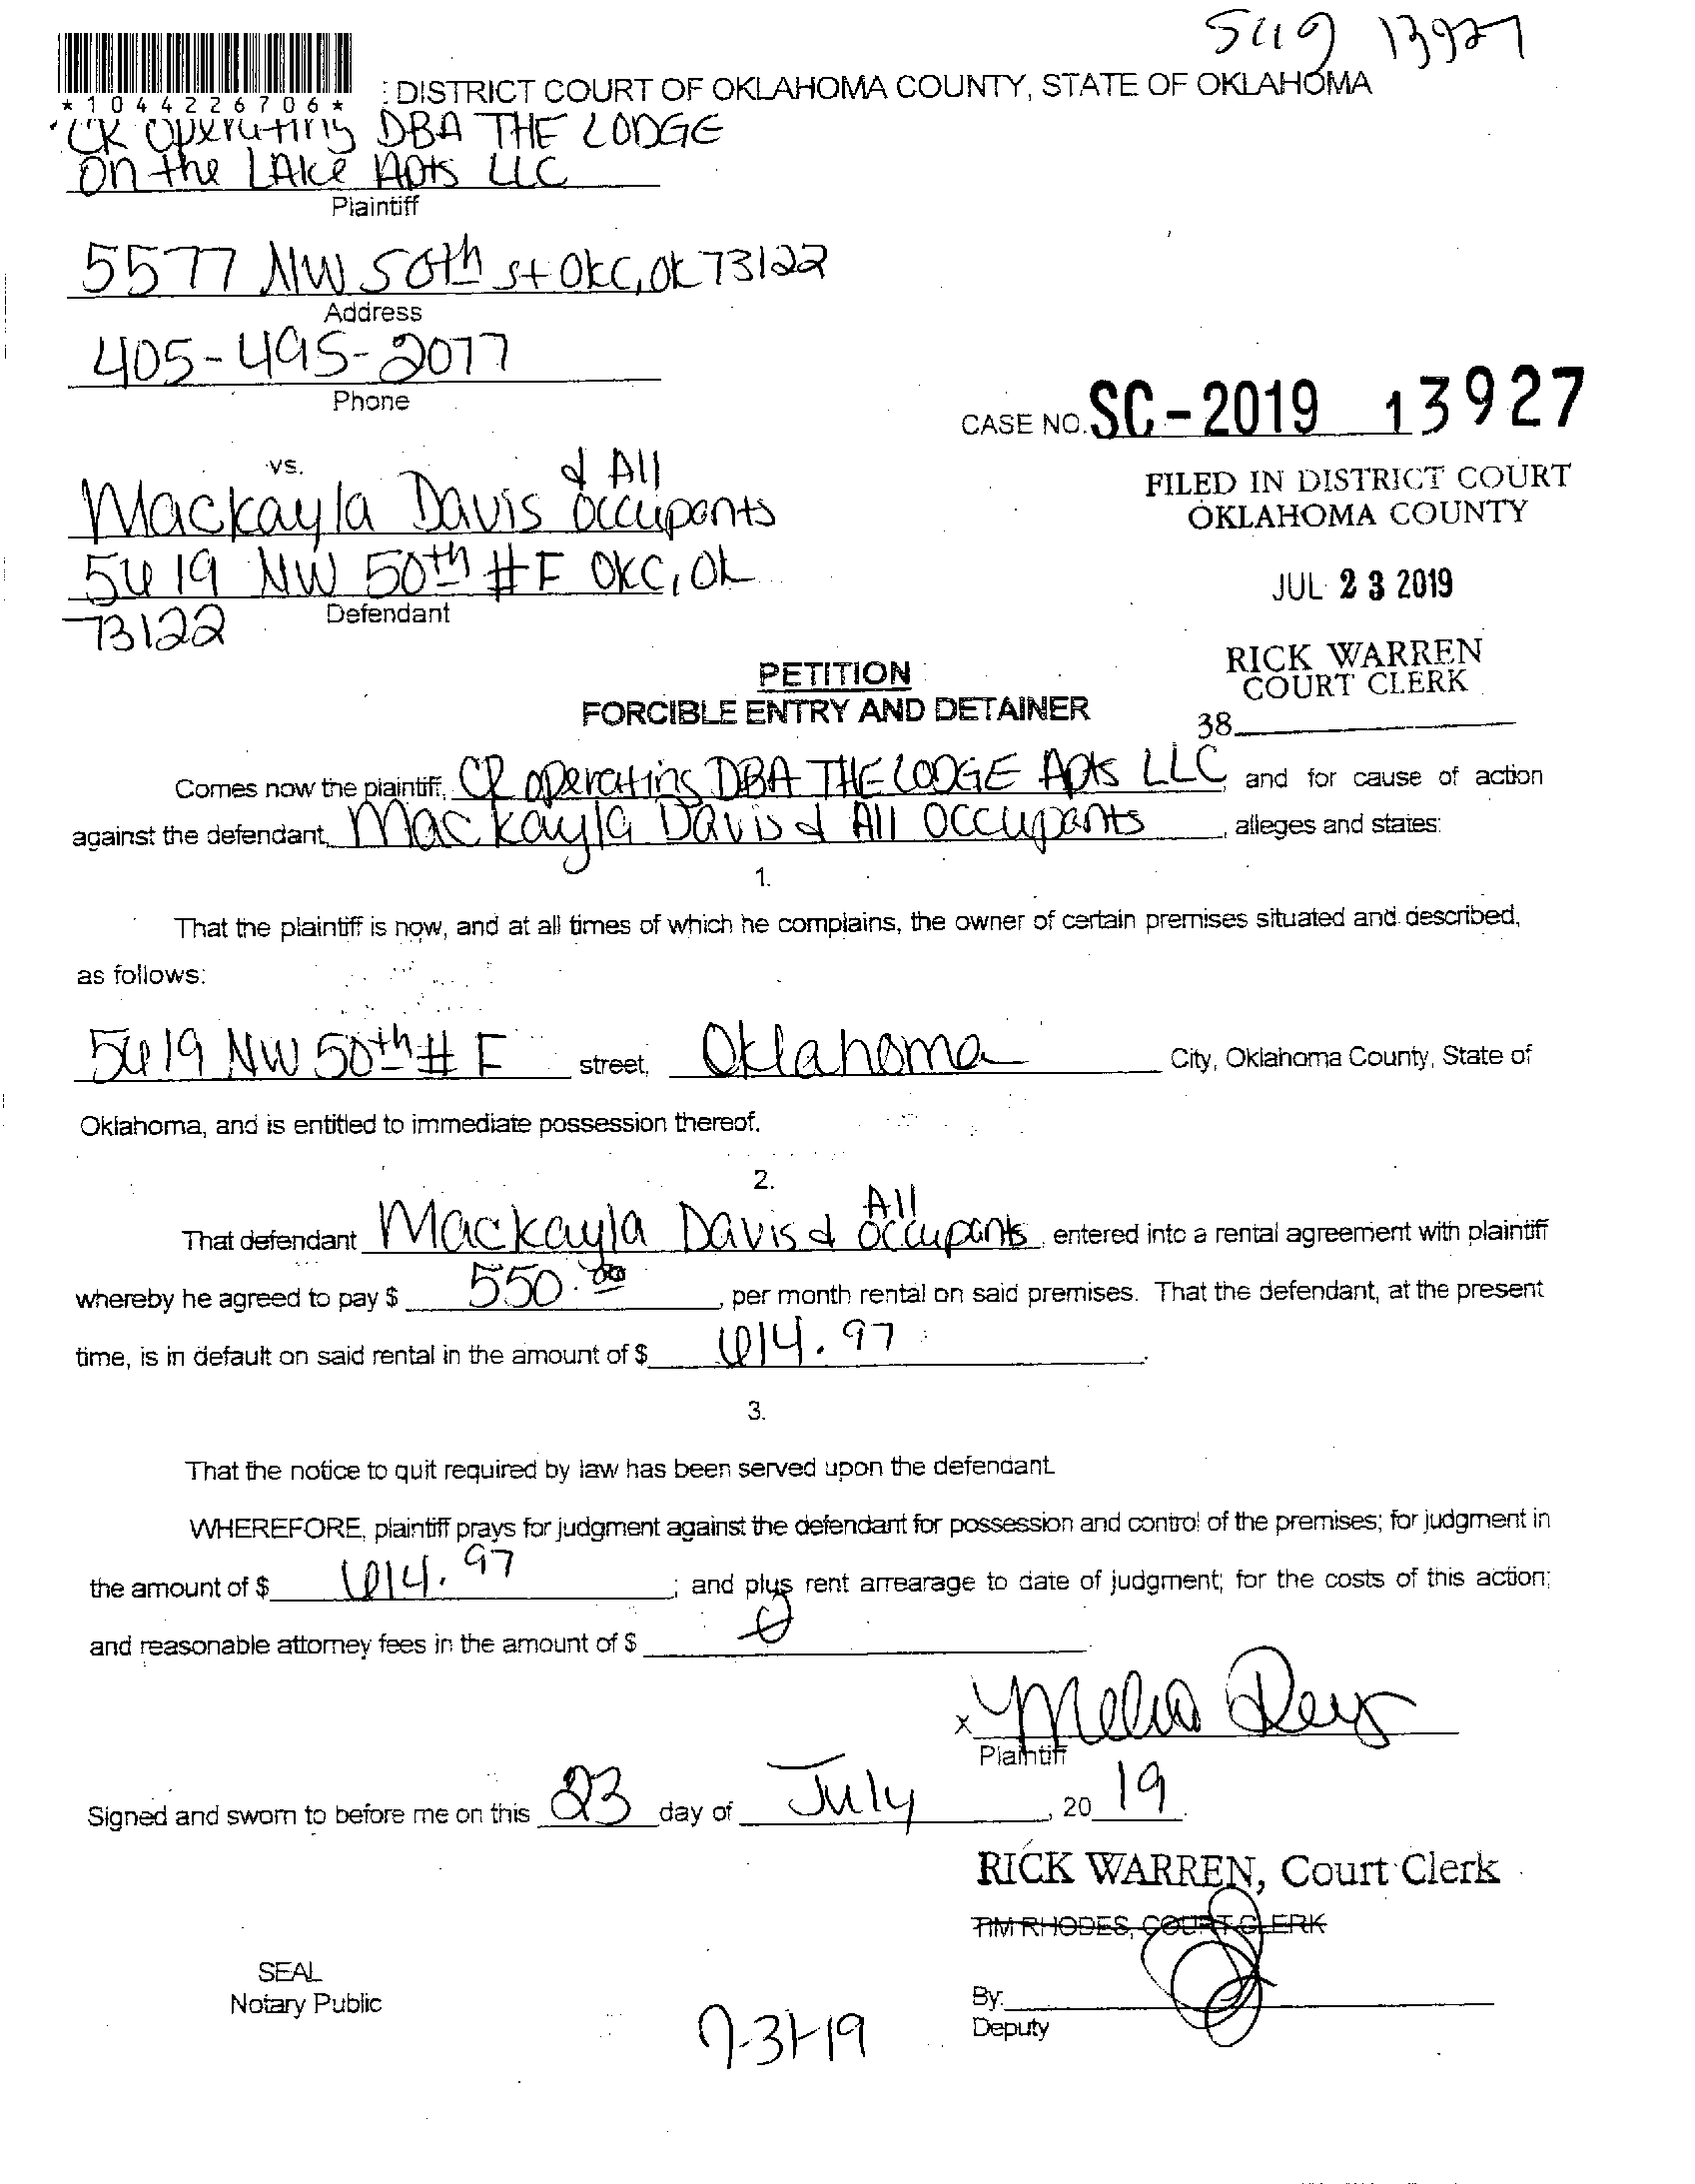 SC19 13927
*1044226706*
: DISTRICT COURT OF OKLAHOMA COUNTY, STATE OF OKLAHOMA
CR Operating DBA THE LODGE
On the LAke Apts LLC
Plaintiff
5577 NW 50th St OKC, OK 73122
Address
405-495-2077
Phone
CASE NO. SC-2019 13927
vs.
FILED IN DISTRICT COURT
OKLAHOMA COUNTY
Mackayla Davis & All occupants
5619 NW 50th #F OKC, OK
73122
Defendant
JUL 23 2019
RICK WARREN
COURT CLERK
38
PETITION
FORCIBLE ENTRY AND DETAINER
Comes now the plaintiff, CR operating DBA THE LODGE Apts LLC, and for cause of action
against the defendant, Mackayla Davis & All occupants, alleges and states:
1.
That the plaintiff is now, and at all times of which he complains, the owner of certain premises situated and described,
as follows:
5619 NW 50th # F street, Oklahoma City, Oklahoma County, State of
Oklahoma, and is entitled to immediate possession thereof.
2.
That defendant Mackayla Davis & All occupants, entered into a rental agreement with plaintiff
whereby he agreed to pay $ 550.00, per month rental on said premises. That the defendant, at the present
time, is in default on said rental in the amount of $ 614.97.
3.
That the notice to quit required by law has been served upon the defendant.
WHEREFORE, plaintiff prays for judgment against the defendant for possession and control of the premises; for judgment in
the amount of $ 614.97; and plus rent arrearage to date of judgment; for the costs of this action;
and reasonable attorney fees in the amount of $
x
Plaintiff
Signed and sworn to before me on this 23 day of July, 20 19.
RICK WARREN, Court Clerk
TIM RHODES, COURT CLERK
SEAL
Notary Public
By:
Deputy
7-31-19